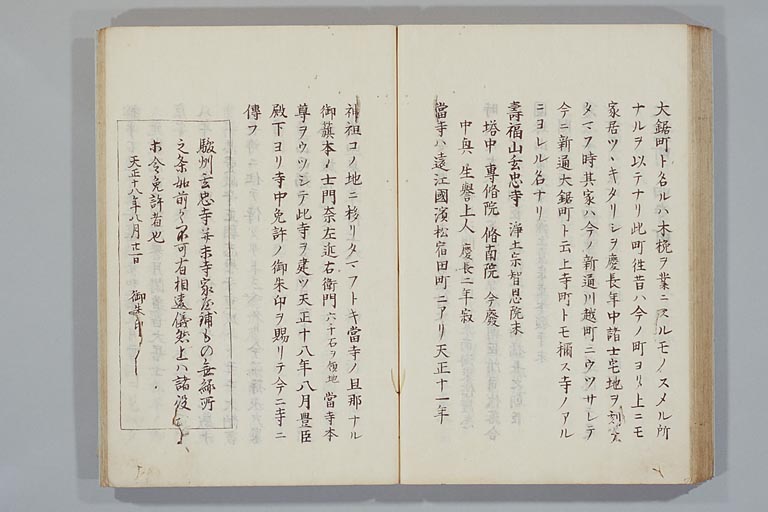 大鋸町ト名ルハ木挽ヲ業ニスルモノスメル所
ナルヲ以テナリ此町徃昔ハ今ノ町ヨリ上ニモ
家居ツヽキタリシヲ慶長年中諸士宅地ヲ割
タマフ時其家ハ今ノ新通川越町ニウツサレテ
今ニ新通大鋸町ト云上寺町トモ稱ス寺ノアル
ニヨレル名ナリ
壽福山玄忠寺 浄土宗智恩院末
塔中 専脩院 脩南院 今廢
中興 生譽上人 慶長二年寂
當寺ハ遠江國濱松宿田町ニアリ天正十一年
神祖コノ地ニ移リタマフトキ當寺ノ旦那ナル
御籏本ノ士門奈左近右衛門 六千石ヲ領地 當寺本
尊ヲウツシテ此寺ヲ建ツ天正十八年八月豊臣
殿下ヨリ寺中免許ノ御朱印ヲ賜リテ今ニ寺ニ
傳フ
駿州玄忠寺并末寺家屋鋪
之条如前々不可有相違儀然上ハ諸役
令免許者也
天正十八年八月廿一日 御朱印